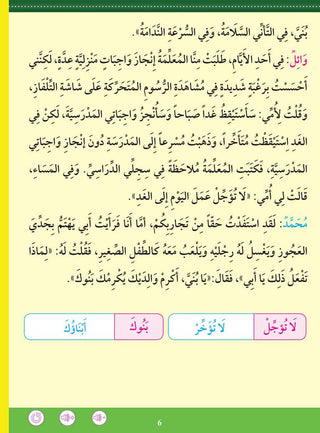 بُنَيَّ، فِي التَّأَنِّي السَّلَامَةُ، وَفِي السُّرْعَةِ النَّدَامَةُ».
وَائِلٌ: فِي أَحَدِ الْأَيَّامِ، طَلَبَتْ مِنَّا الْمُعَلِّمَةُ إِنْجَازَ وَاجِبَاتٍ مَنْزِلِيَّةٍ عِدَّةٍ، لَكِنَّنِي
أَحْسَسْتُ بِرَغْبَةٍ شَدِيدَةٍ فِي مُشَاهَدَةِ الرُّسُومِ الْمُتَحَرِّكَةِ عَلَى شَاشَةِ التِّلْفَازِ،
وَقُلْتُ لِأُمِّي: سَأَسْتَيْقِظُ غَداً صَبَاحاً وَسَأُنْجِزُ وَاجِبَاتِي الْمَدْرَسِيَّةَ، لَكِنْ فِي
الْغَدِ اسْتَيْقَظْتُ مُتَأَخِّراً، وَذَهَبْتُ مُسْرِعاً إِلَى الْمَدْرَسَةِ دُونَ إِنْجَازِ وَاجِبَاتِي
الْمَدْرَسِيَّةِ، فَكَتَبَتِ الْمُعَلِّمَةُ مُلَاحَظَةً فِي سِجِلِّي الدِّرَاسِيِّ. وَفِي الْمَسَاءِ،
قَالَتْ لِي أُمِّي: «لَا تُؤَجِّلْ عَمَلَ الْيَوْمِ إِلَى الْغَدِ».
مُحَمَّدٌ: لَقَدِ اسْتَفَدْتُ حَقّاً مِنْ تَجَارِبِكُمْ، أَمَّا أَنَا فَرَأَيْتُ أَبِي يَهْتَمُّ بِجَدِّيَ
الْعَجُوزِ وَيَغْسِلُ لَهُ رِجْلَيْهِ وَيَلْعَبُ مَعَهُ كَالطِّفْلِ الصَّغِيرِ، فَقُلْتُ لَهُ: «لِمَاذَا
تَفْعَلُ ذَلِكَ يَا أَبِي»، فَقَالَ: «يَا بُنَيَّ، أَكْرِمْ وَالِدَيْكَ يُكْرِمْكَ بَنُوكَ».
لَا تُؤَجِّلْ لَا تُؤَخِّرْ بَنُوكَ أَبْنَاؤُكَ
6